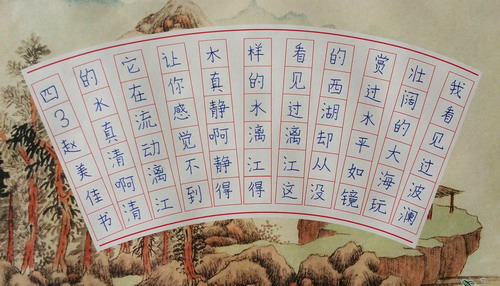 我看见过波澜
壮阔的大海玩
赏过水平如镜
的西湖却从没
看见过漓江这
样的水漓江得
水真静啊静得
让你感觉不到
它在流动漓江
的水真清啊清
四3赵美佳书